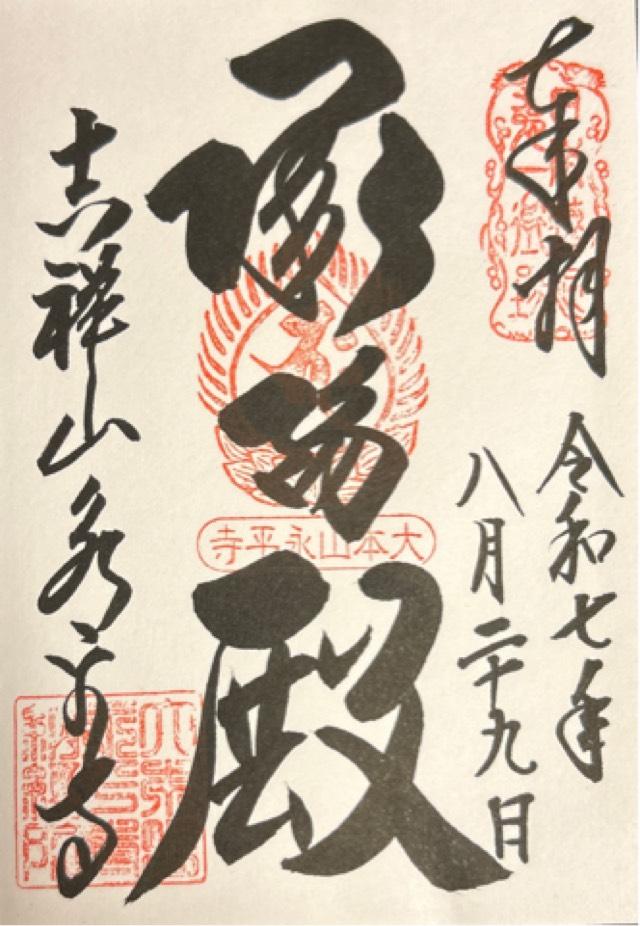 奉拝
令和七年
八月二十九日
承陽殿
大本山永平寺
吉祥山永平寺